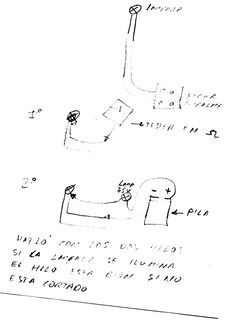 LAMPARA
FICHA
1º
TESTER EN Ω
2º
LAMP
- +
PILA
CON LOS DOS HILOS
SI LA LAMPARA SE ILUMINA
EL HILO ESTA BIEN SINO
ESTA CORTADO